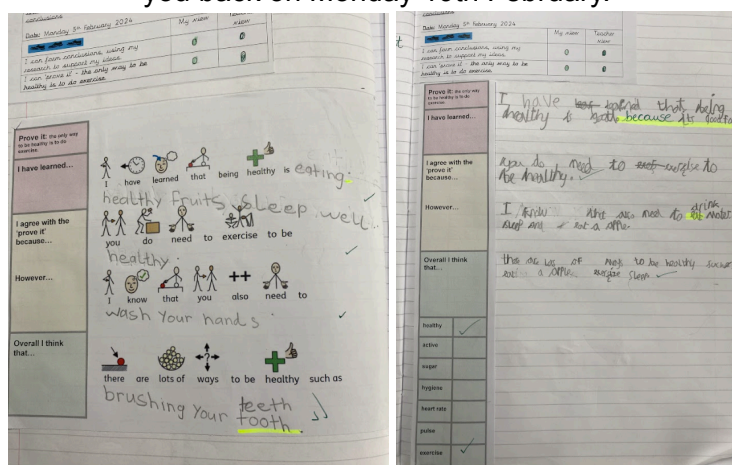 you back on Monday
February.
conclusions
Date: Monday 5th February 2024
My view
view
I can form conclusions, using my
research to support my ideas.
I can 'prove it' - the only way to be
healthy is to do exercise
Prove it: the only way
to be healthy is to do
exercise.
I have learned...
I agree with the
'prove it'
because...
However...
Overall I think
that...
I have learned that being healthy is eating.
healthy fruits, sleep well..
you do need to exercise to be
healthy.
I know that you also need to
wash your hands.
there are lots of ways to be healthy such as
brushing your teeth
tooth.
Date: Monday 5th February 2024
My view
Teacher
view
I can form conclusions, using my
research to support my ideas.
I can 'prove it' - the only way to be
healthy is to do exercise
Prove it: the only way
to be healthy is to do
exercise
I have learned...
I agree with the
'prove it'
because...
However...
Overall I think
that...
healthy
active
sugar
hygiene
heart rate
pulse
exercise
I have that being
healthy is because its good
you do need to to
be healthy.
I know also need to drink water
to be healthy